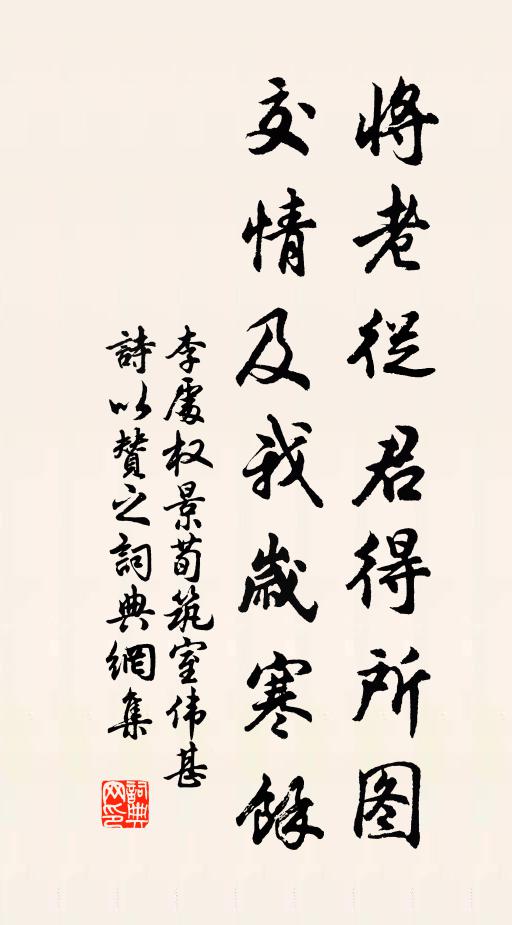 將老從君得所图
交情及我歲寒餘
李處权景荀筑室伟甚
詩以贊之詞典網集
詞典网印